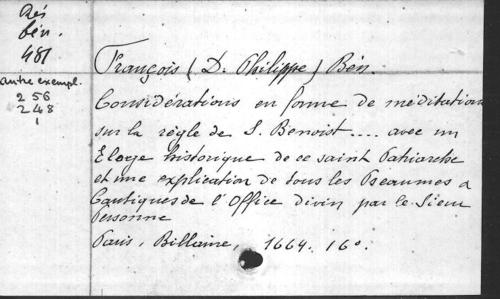 Rés
bén.
481
autre exempl.
256
248
1
François (D. Philippe) Bén.
Considérations en forme de méditations
sur la règle de S. Benoist .... avec un
Eloge historique de ce saint Patriarche
et une explication de tous les Pseaumes &
Cantiques de l'Office divin par le Sieur
Personne
Paris, Billaine, 1664. 16°.